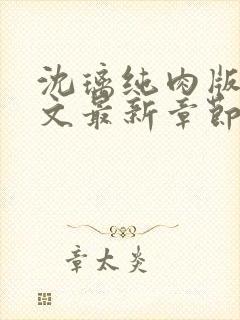 沈璃纯肉版
文最新章節
章太炎